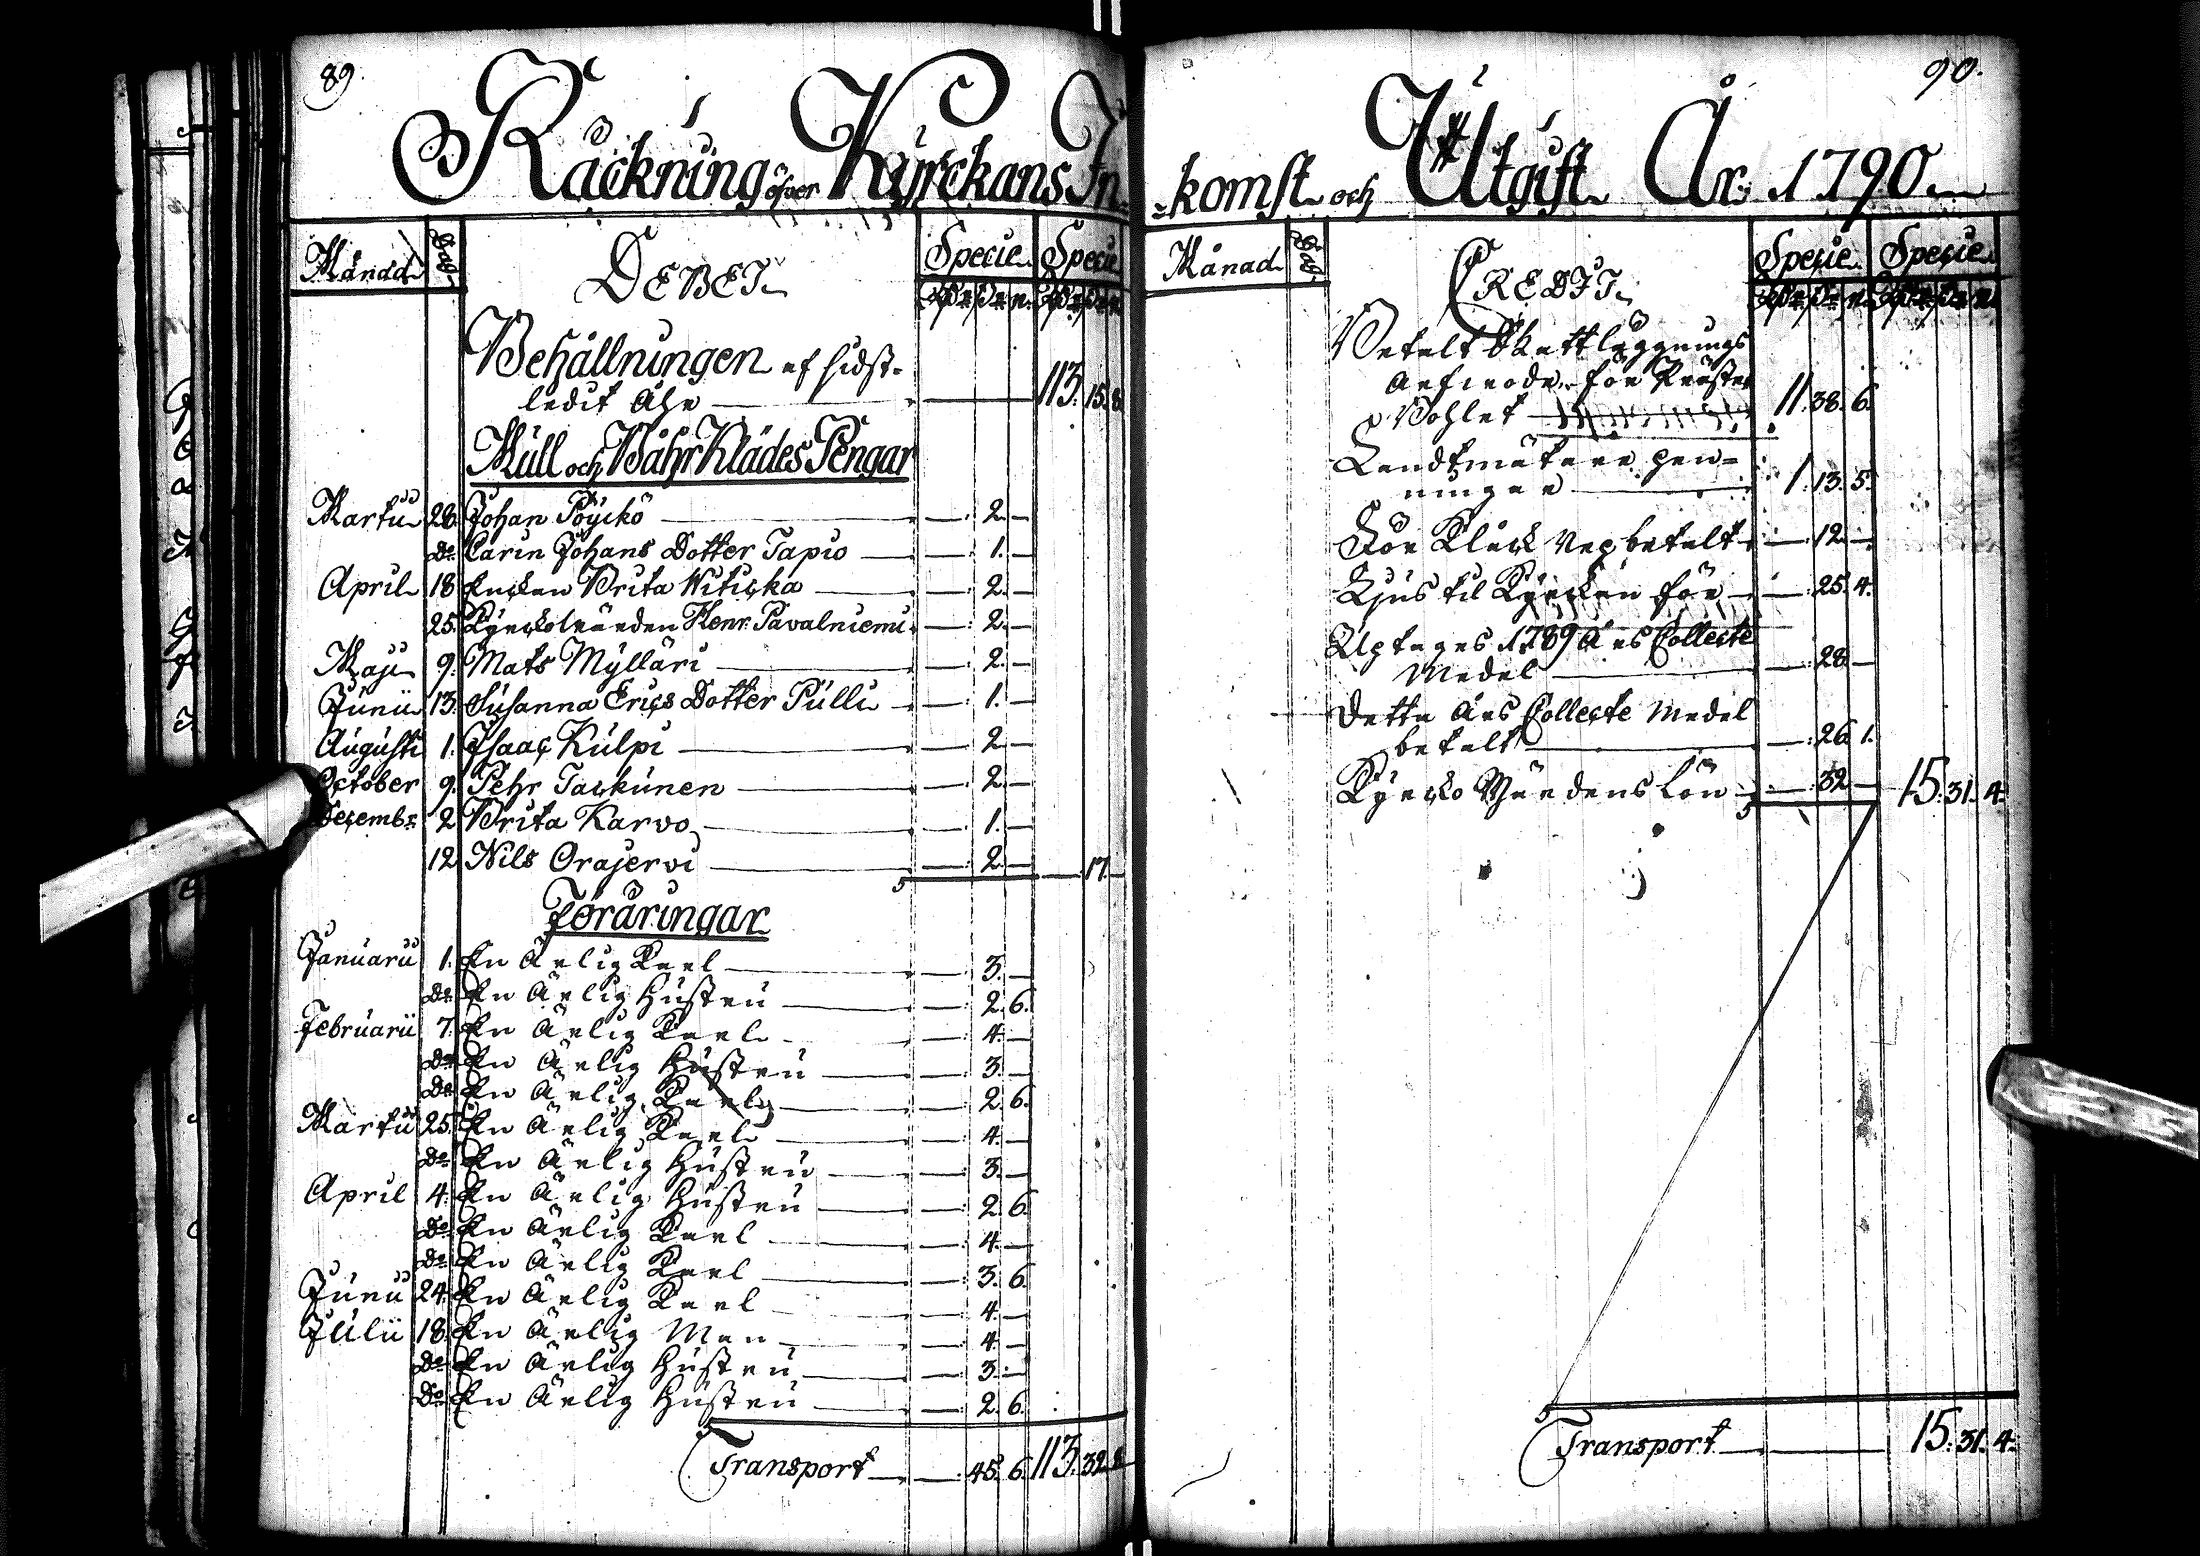 89
Räckning öfver Kyrckans In=
Månad Dag DEBET Specie Specie
Rd: s: r: Rd: s: r:
Behållningen af sidst-
ledit åhr 113. 15. 8.
Mull och Båhr Klädes Pengar
Martii 28. Johan Pöyckö 2. —
Do Carin Johans Dotter Tapio 1. —
April 18 Enckan Brita Witicka 2. —
25. Kyrckovärden Henr. Pavalniemi 2. —
Maji 9. Mats Mylläri 2. —
Junii 13. Susanna Erics Dotter Pulli 1. —
Augusti 1. Isaac Kulpi 2. —
October 9. Pehr Taskinen 2. —
Decembr. 2 Brita Karvo 1. —
12 Nils Orajervi 2. — 17. —
Föräringar
Januarii 1. En Ärlig Karl 3. —
Do En Ärlig Hustru 2. 6.
Februarii 7. En Ärlig Karl 4. —
Do En Ärlig Hustru 3. —
Do En Ärlig Karl 2. 6.
Martii 25. En Ärlig Karl 4. —
Do En Ärlig Hustru 3. —
April 4. En Ärlig Hustru 2. 6
Do En Ärlig Karl 4. —
Do En Ärlig Karl 3. 6.
Junii 24. En Ärlig Karl 4. —
Julii 18. En Ärlig Man 4. —
Do En Ärlig Hustru 3. —
Do En Ärlig Hustru 2. 6.
Transport 45. 6. 113. 32. 8
90.
=komst och Utgift År 1790
Månad Dag CREDIT Specie Specie
Rd: s: r: Rd: s: r:
Betalt Skattläggnings
Arfvode för Präste
Bohlet 11. 38. 6.
Landtmätare pen=
ningar 1. 13. 5.
För Klåck Rep betalt 12. —
Ljus til Kyrckan för 25. 4.
Uptages 1789 Års Collecte
Medel 28 —
Detta Års Collecte Medel
betalt 26. 1.
Kyrcko Wärdens Lön 32 — 15. 31. 4.
Transport 15. 31. 4.